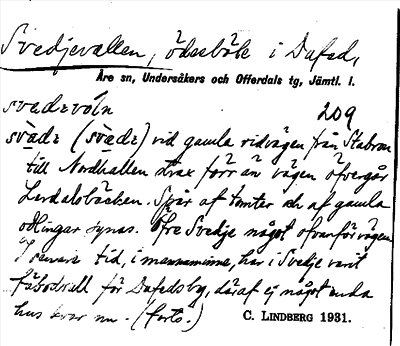 Svedjevallen, ödesböle i Dufed,
Åre sn, Undersåkers och Offerdals tg, Jämtl. l.
svedɛvóln 209
svàdɛ (svàdɛ) vid gamla ridvägen från Stabron
till Nordhallen strax förr än vägen öfvergår
Lerdalsbäcken. Spår af tomter och af gamla
odlingar synas. Öfre Svedje något ofvanför vägen
og senare tid, i mannaminne, har i Svedje varit
fäbodvall för Dufedsby, däraf ej något enda
hus kvar nu. (forts.)
C. LINDBERG 1931.